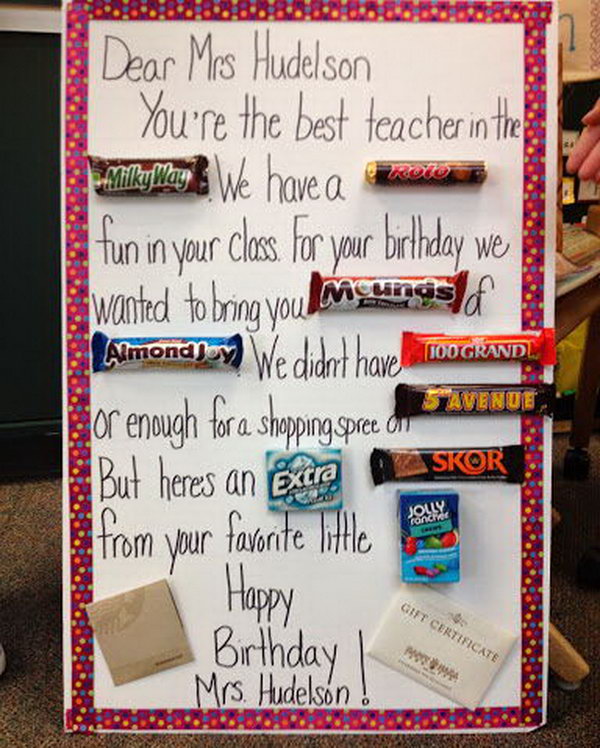 Dear Mrs Hudelson
You're the best teacher in the
MilkyWay. We have a ROLO
fun in your class. For your birthday we
wanted to bring you Mounds of
Almond Joy We didn't have 100 GRAND
or enough for a shopping spree on 5th AVENUE
But heres an Extra SKOR
from your favorite little JOLLY RANCHER
Happy
Birthday
Mrs. Hudelson!
GIFT CERTIFICATE